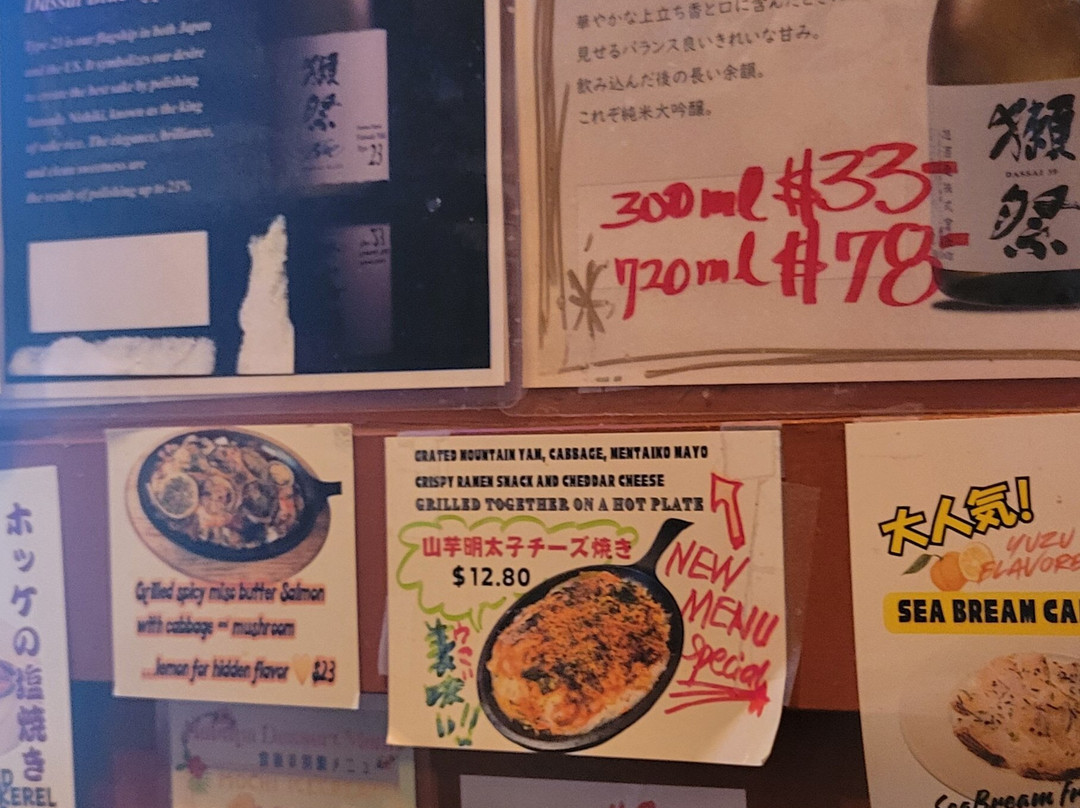 Type 23 is our flagship in both Japan
and the US. It symbolizes our desire
to create the best sake by polishing
of sake rice. The elegance, brilliance,
and clean sweetness are
the result of polishing up to 23%
獺祭
23
華やかな上立ち香と口に含んだとき
見せるバランス良いきれいな甘み。
飲み込んだ後の長い余韻。
これぞ純米大吟醸。
300ml $33-
720ml $78-
獺祭
DASSAI 39
ホッケの塩焼き
KEREL
Grilled spicy miso butter Salmon
with cabbage and mushroom
...lemon for hidden flavor $23
GRATED MOUNTAIN YAM, CABBAGE, MENTAIKO MAYO
CRISPY RAMEN SNACK AND CHEDDAR CHEESE
GRILLED TOGETHER ON A HOT PLATE
山芋明太子チーズ焼き
$12.80
NEW
MENU
Special
大人気!
YUZU
FLAVORE
SEA BREAM CA
Sea Bream Fr